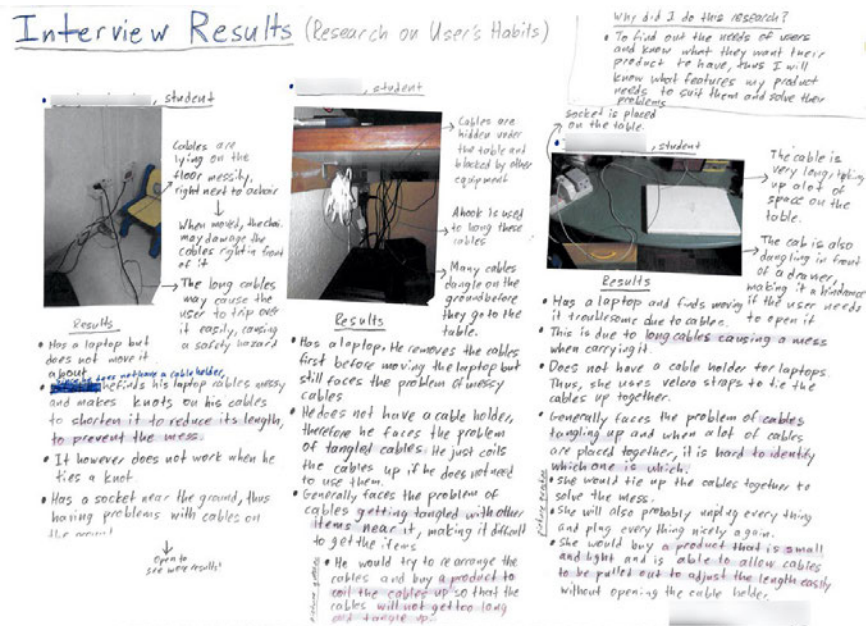 Interview Results (Research on User's Habits)
Why did I do this research?
• To find out the needs of users
and know what they want their
product to have, thus I will
know what features my product
needs to suit them and solve their
problems
• , student
Cables are
lying on the
floor messily,
right next to a chair
When moved, the chair
may damage the
cables right in front
of it
The long cables
may cause the
user to trip over
it easily, causing
a safety hazard
Results
• Has a laptop but
does not move it
about
since he does not have a cable holder,
• he finds his laptop cables messy
and makes knots on his cables
to shorten it to reduce its length,
to prevent the mess.
• It however does not work when he
ties a knot.
• Has a socket near the ground, thus
having problems with cables on
the ground
Open to
see more results!
• , student
Cables are
hidden under
the table and
blocked by other
equipment
A hook is used
to hang these
cables
Many cables
dangle on the
ground before
they go to the
table.
Results
• Has a laptop. He removes the cables
first before moving the laptop but
still faces the problem of messy
cables
• He does not have a cable holder,
therefore he faces the problem
of tangled cables. He just coils
the cables up if he does not need
to use them.
• Generally faces the problem of
cables getting tangled with other
items near it, making it difficult
to get the items
• He would try to rearrange the
cables and buy a product to
coil the cables up so that the
cables will not get too long
and tangle up.
socket is placed
on the table.
• , student
The cable is
very long, taking
up a lot of
space on the
table.
The cab is also
dangling in front
of a drawer,
making it a hindrance
if the user needs
to open it
Results
• Has a laptop and finds moving
it troublesome due to cables.
• This is due to long cables causing a mess
when carrying it.
• Does not have a cable holder for laptops.
Thus, she uses velcro straps to tie the
cables up together.
• Generally faces the problem of cables
tangling up and when a lot of cables
are placed together, it is hard to identify
which one is which.
• she would tie up the cables together to
solve the mess.
• She will also probably unplug every thing
and plug everything nicely again.
• She would buy a product that is small
and light and is able to allow cables
to be pulled out to adjust the length easily
without opening the cable holder.